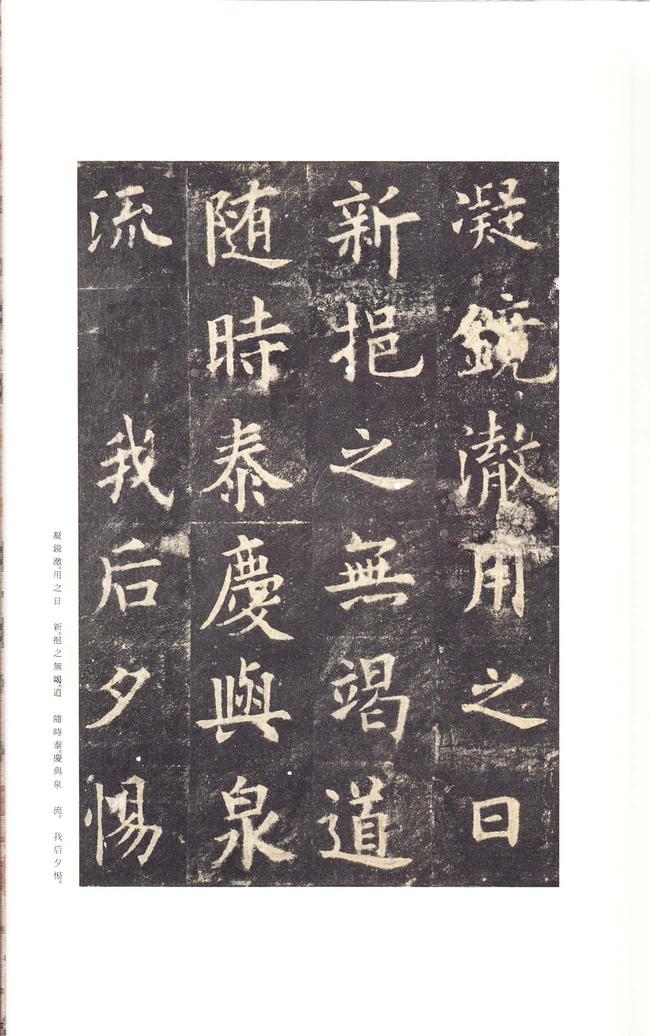 凝鏡澈用之日
新挹之無竭道
随時泰慶與泉
流 我后夕惕
凝鏡澈。用之日 新。挹之無竭。道 隨時泰。慶與泉 流。 我后夕惕。